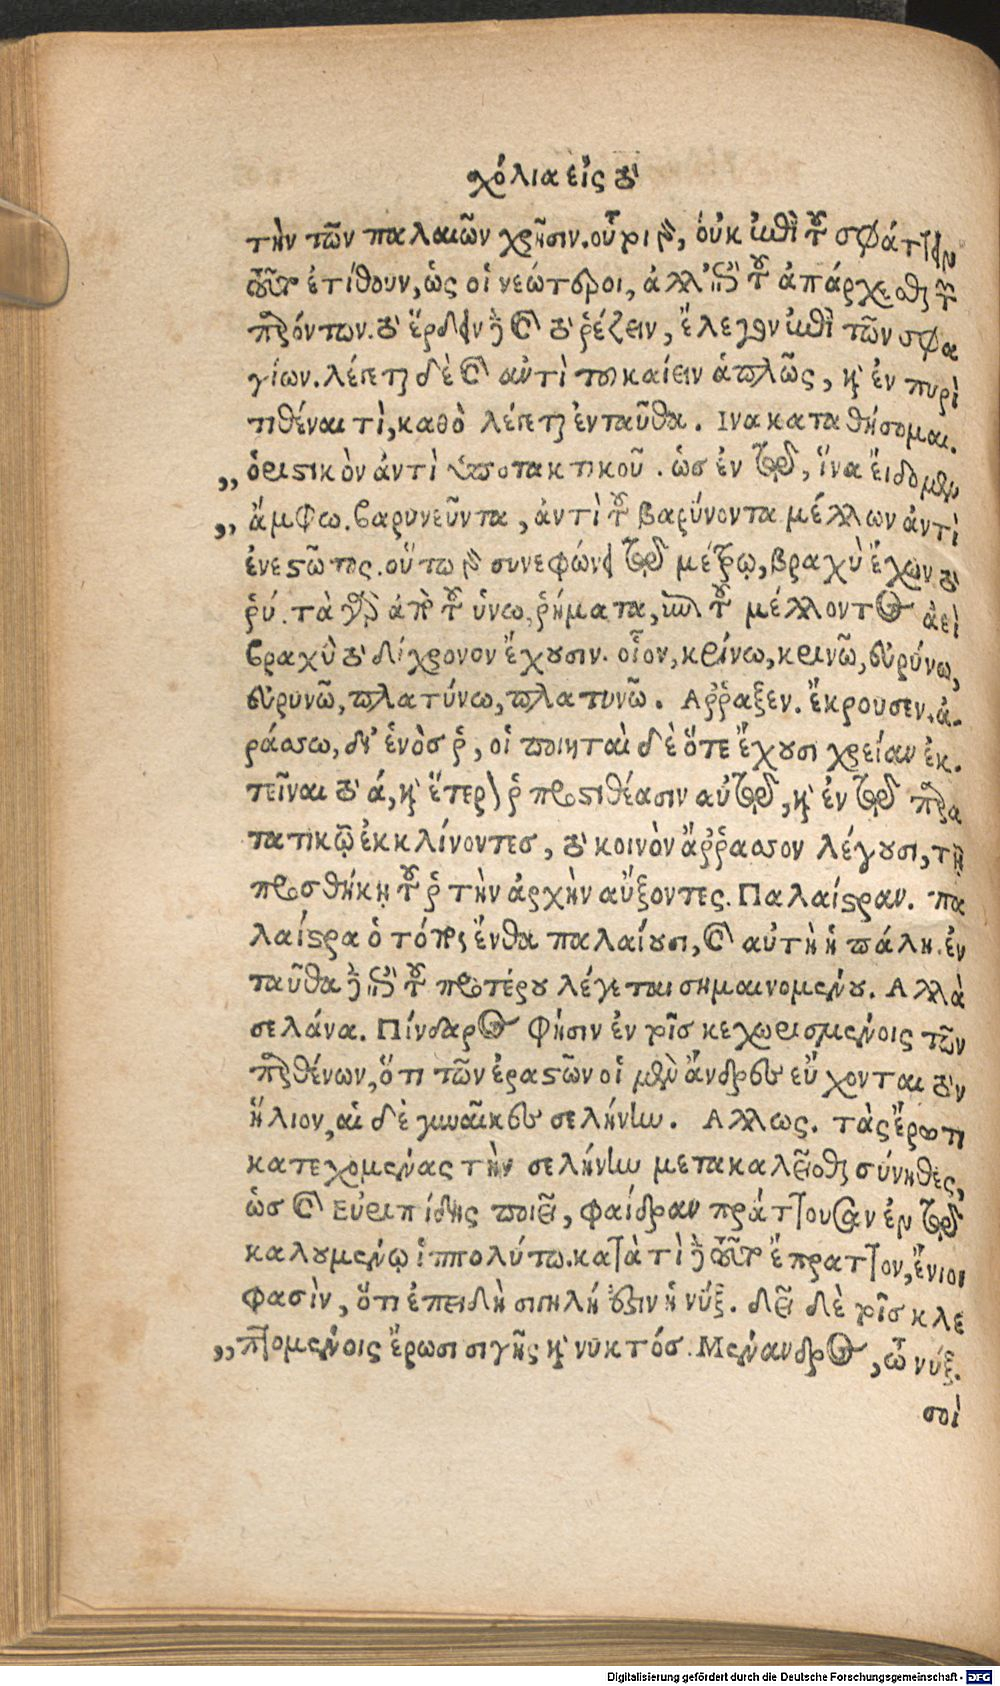 χόλια εἰς τὸ
τὴν τῶν παλαιῶν χρῆσιν. οὗτοι γὰρ, οὐκ ἐπὶ τοῦ σφάττειν
τοῦτο ἐτίθουν, ὡς οἱ νεώτεροι, ἀλλ' ἐπὶ τοῦ ἀπάρχεσθαι τῶν
παρόντων. τὸ ἔρδειν ἢ καὶ τὸ ῥέζειν, ἔλεγον ἐπὶ τῶν σφα
γίων. λέγεται δὲ καὶ ἀντὶ τοῦ καίειν ἁπλῶς, καὶ ἐν πυρὶ
τιθέναι τὶ, καθὸ λέγεται ἐνταῦθα. Ινα καταθήσομαι.
„ ὁριστικὸν ἀντὶ ὑποτακτικοῦ. ὡσ ἐν τῷ, ἵνα ἔιδομεν
„ ἄμφω. βαρυνεῦντα, ἀντὶ τοῦ βαρύνοντα μέλλων ἀντὶ
ἐνεστῶτος. οὕτω γὰρ συνεφώνει τῷ μέτρῳ, βραχὺ ἔχων τὸ
ῥύ. τὰ γὰρ ἀπὸ τοῦ ύνω, ῥήματα, ἐπὶ τοῦ μέλλοντος ἀεὶ
βραχὺ τὸ δίχρονον ἔχουσιν. οἷον, κρίνω, κρινῶ, εὐρύνω,
εὐρυνῶ, πλατύνω, πλατυνῶ. Αῤῥαξεν. ἔκρουσεν. ἀ-
ράσσω, δι' ἑνὸσ ῥ, οἱ ποιηταὶ δὲ ὅτε ἔχουσι χρείαν ἐκ-
τεῖναι τὸ ά, καὶ ἕτερον ῥ προστιθέασιν αὐτῷ, καὶ ἐν τῷ παρα
τατικῷ ἐκκλίνοντεσ, τὸ κοινὸν ἄῤῥασσον λέγουσι, τῇ
προσθήκῃ τοῦ ῥ τὴν ἀρχὴν αὔξοντες. Παλαίστραν. πα
λαίστρα ὁ τόπος ἔνθα παλαίουσι, καὶ αὐτὴ ἡ πάλη. ἐν
ταῦθα ἢ ἐπὶ τοῦ προτέρου λέγεται σημαινομένου. Αλλὰ
σελάνα. Πίνδαρος φήσιν ἐν τοῖς κεχωρισμένοις τῶν
παρθένων, ὅτι τῶν ἐραστῶν οἱ μὲν ἄνδρες εὔχονται τὸν
ἥλιον, αἱ δὲ γυναῖκες σελήνην. Αλλως. τὰς ἔρωτι
κατεχομένας τὴν σελήνην μετακαλεῖσθαι σύνηθες,
ὡς καὶ Εὐριπίδης ποιεῖ, φαίδραν πράττουσαν ἐν τῷ
καλουμένῳ ἱππολύτω. κατὰ τὶ ἢ τοῦτο ἔπραττον, ἔνιοι
φασὶν, ὅτι ἐπειδὴ σιγηλή ἐστιν ἡ νύξ. δεῖ δὲ τοῖσ κλε
„ πτομένοις ἔρωσι σιγῆς καὶ νυκτόσ. Μένανδρος, ὦ νύξ.
σοὶ
Digitalisierung gefördert durch die Deutsche Forschungsgemeinschaft - DFG